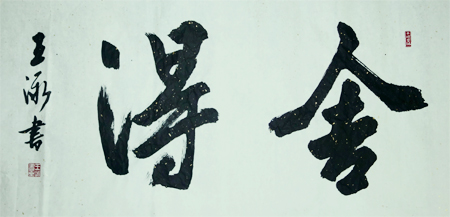 舍得
王泳書